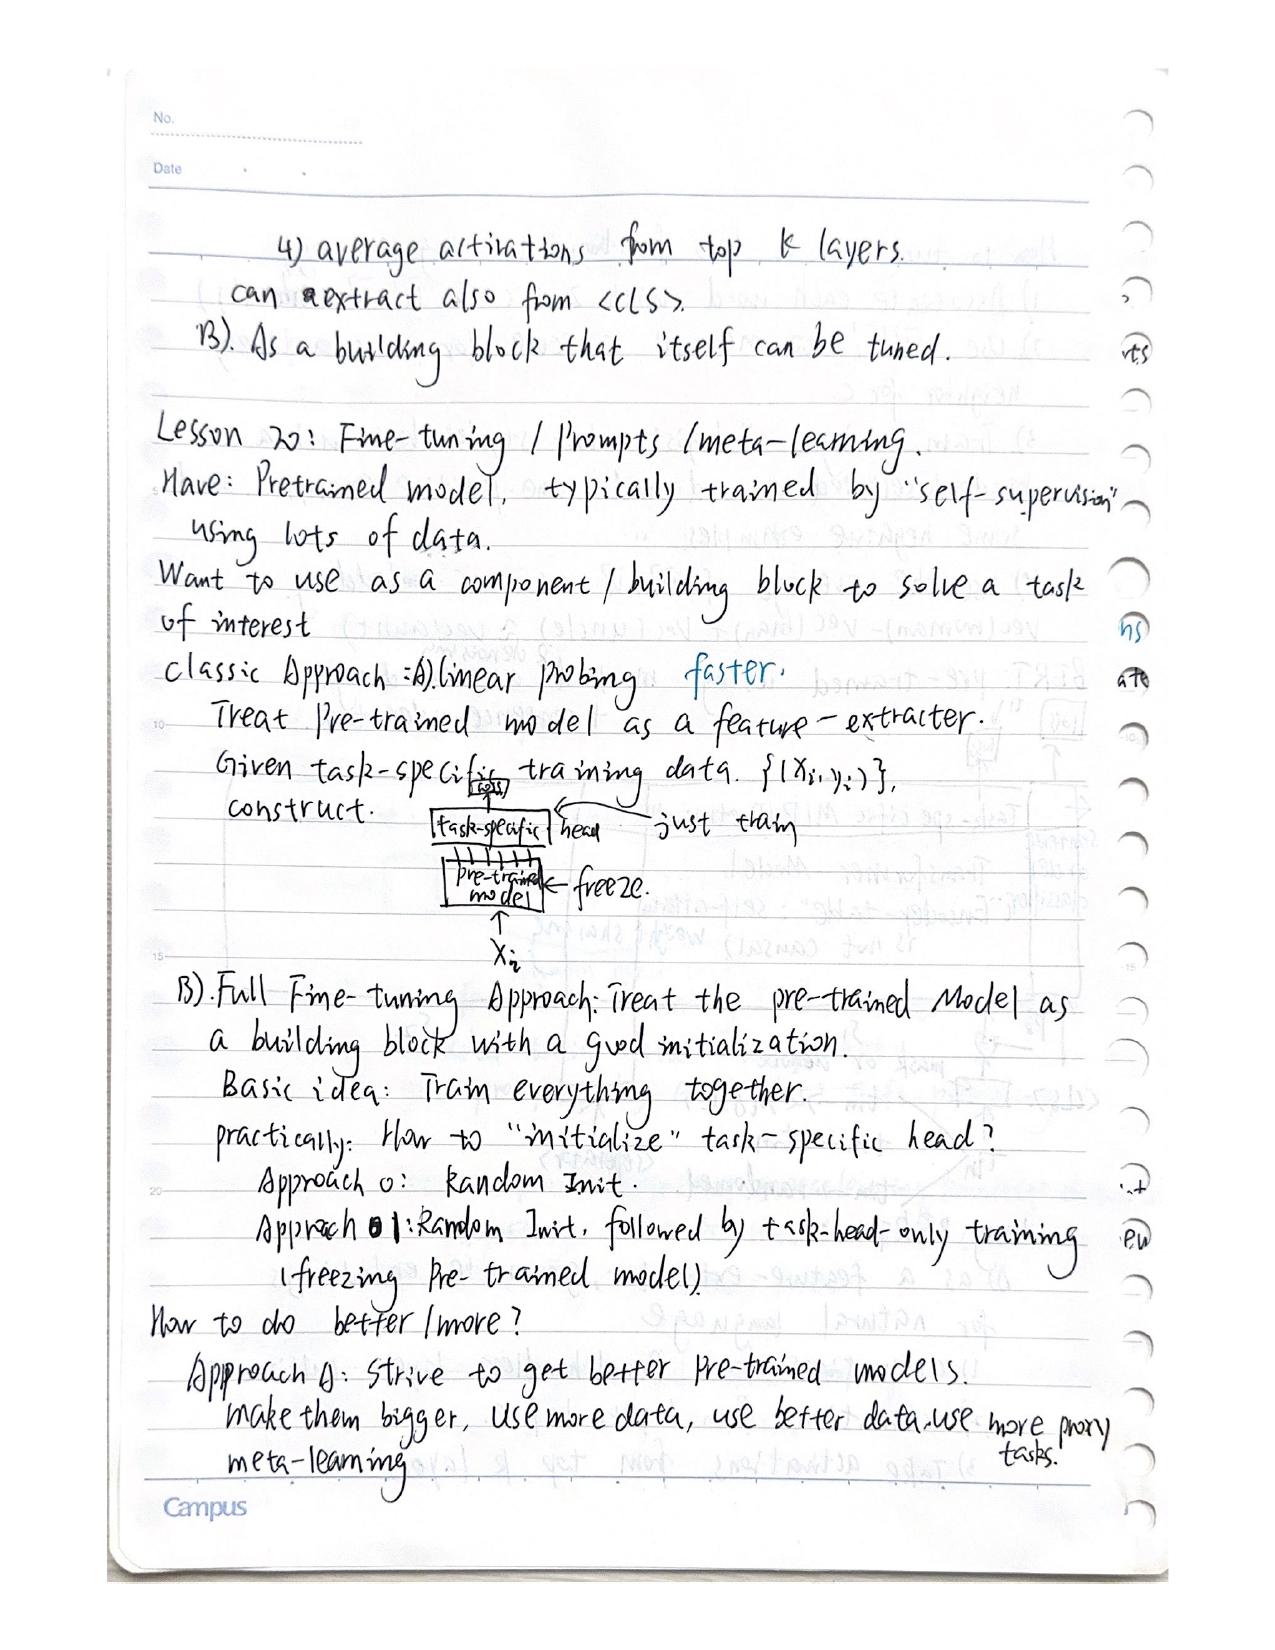 No.
Date
4) average activations from top k layers.
can extract also from <CLS>.
B). As a building block that itself can be tuned.
Lesson 20: Fine-tuning / Prompts / meta-learning.
Have: Pretrained model, typically trained by "self-supervision"
using lots of data.
Want to use as a component / building block to solve a task
of interest
classic Approach: A). linear probing faster.
Treat Pre-trained model as a feature-extracter.
Given task-specific training data. {(Xi, yi)},
construct.
loss
task-specific head just train
pre-trained
model freeze.
Xi
B). Full Fine-tuning Approach: Treat the pre-trained Model as
a building block with a good initialization.
Basic idea: Train everything together.
practically: How to "initialize" task-specific head?
Approach 0: Random Init.
Approach 1: Random Init. followed by task-head-only training
(freezing Pre-trained model).
How to do better/more?
Approach A: Strive to get better pre-trained models.
make them bigger, use more data, use better data, use more proxy
tasks.
meta-learning
10
15
20
Campus